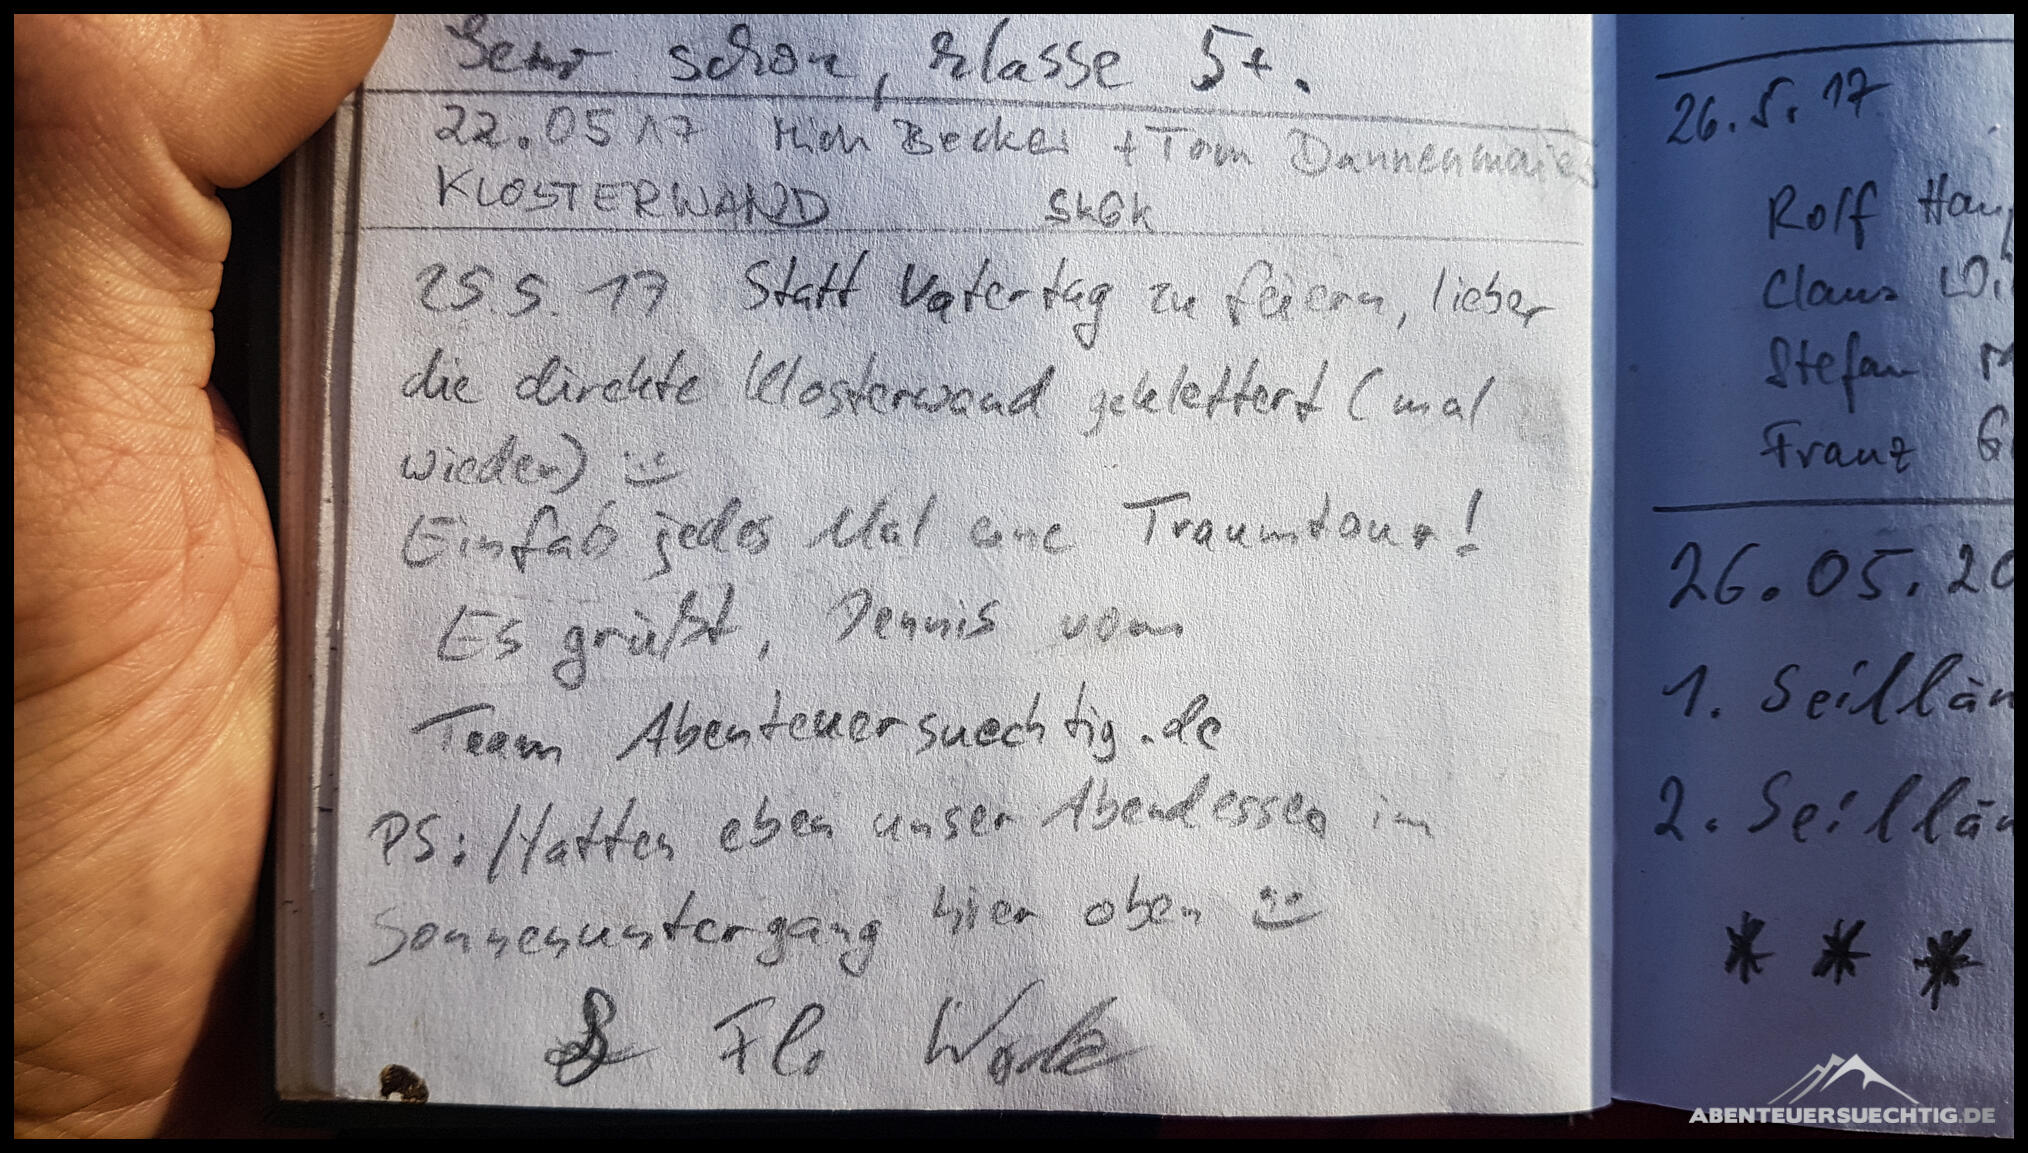 Sehr schön, klasse 5+.
22.05 17 Mich Becker + Tom Dannenmaier
KLOSTERWAND SKGK
25.5.17 Statt Vatertag zu feiern, lieber
die direkte Klosterwand geklettert (mal
wieder) :-)
Einfab jedes Mal eine Traumtour!
Es grüßt, Dennis vom
Team Abenteuersuechtig.de
PS: Hatten eben unser Abendessen im
Sonnenuntergang hier oben :-)
& Flo
26.5.17
Rolf
Claus
Stefan
Franz
26.05.20
1. Seillän
2. Seillän
* * *
ABENTEUERSUECHTIG.DE